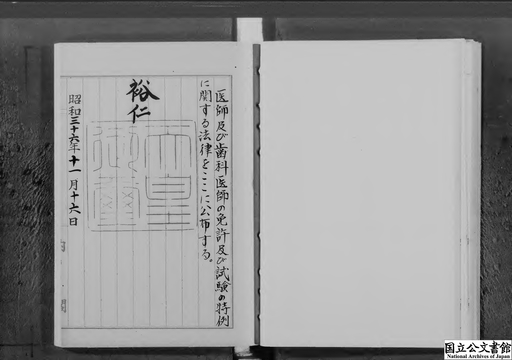 医師及び歯科医師の免許及び試験の特例
に関する法律をここに公布する。
裕仁
天皇
御璽
昭和三十六年十一月十六日
国立公文書館
National Archives of Japan